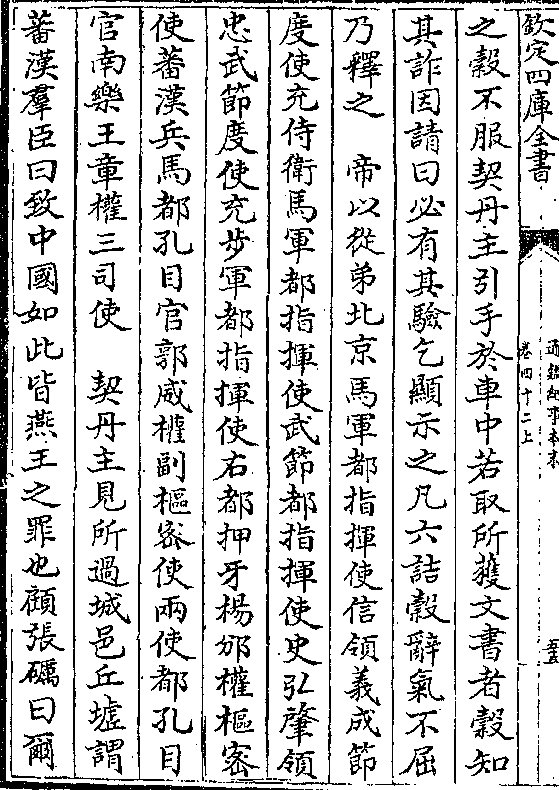 欽定四庫全書
通鑑紀事本末
卷四十二上
之穀不服契丹主引手於車中若取所獲文書者穀知
其詐因請曰必有其驗乞顯示之凡六詰穀辭氣不屈
乃釋之　帝以從弟北京馬軍都指揮使信領義成節
度使充侍衛馬軍都指揮使武節都指揮使史弘肇領
忠武節度使充步軍都指揮使右都押牙楊邠權樞密
使蕃漢兵馬都孔目官郭威權副樞密使兩使都孔目
官南樂王章權三司使　契丹主見所過城邑丘墟謂
蕃漢羣臣曰致中國如此皆燕王之罪也顧張礪曰爾